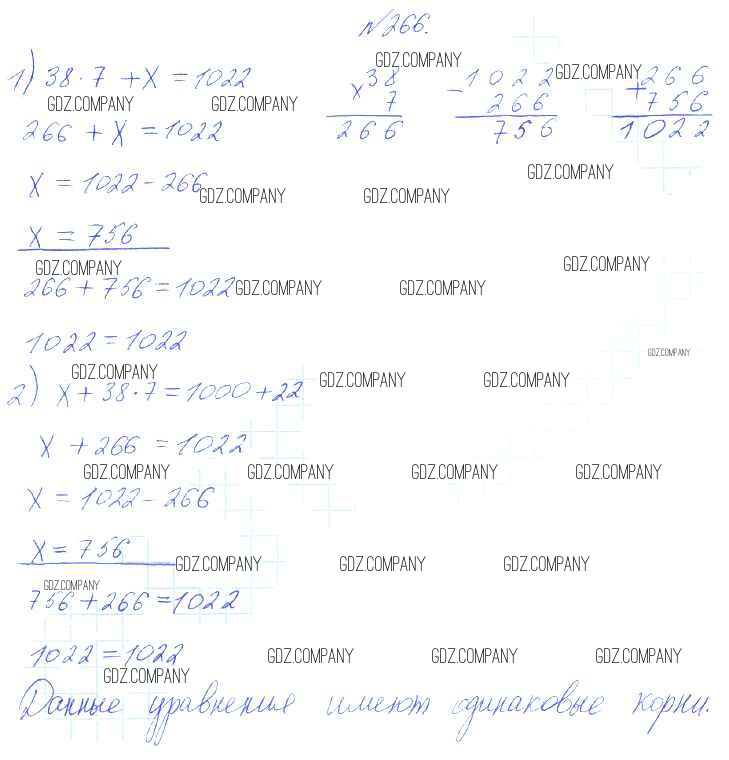 №266.
GDZ.COMPANY
1) 38·7 + x = 1022
38 1022 GDZ.COMPANY 266
GDZ.COMPANY GDZ.COMPANY × 7 − 266 + 756
266 + x = 1022 266 756 1022
GDZ.COMPANY
x = 1022 − 266 GDZ.COMPANY GDZ.COMPANY
x = 756
GDZ.COMPANY GDZ.COMPANY
266 + 756 = 1022 GDZ.COMPANY GDZ.COMPANY
1022 = 1022
GDZ.COMPANY
GDZ.COMPANY GDZ.COMPANY GDZ.COMPANY
2) x + 38·7 = 1000 + 22
x + 266 = 1022
GDZ.COMPANY GDZ.COMPANY GDZ.COMPANY GDZ.COMPANY
x = 1022 − 266
x = 756
GDZ.COMPANY GDZ.COMPANY GDZ.COMPANY
GDZ.COMPANY
756 + 266 = 1022
1022 = 1022 GDZ.COMPANY GDZ.COMPANY GDZ.COMPANY
GDZ.COMPANY
Данные уравнения имеют одинаковые корни.